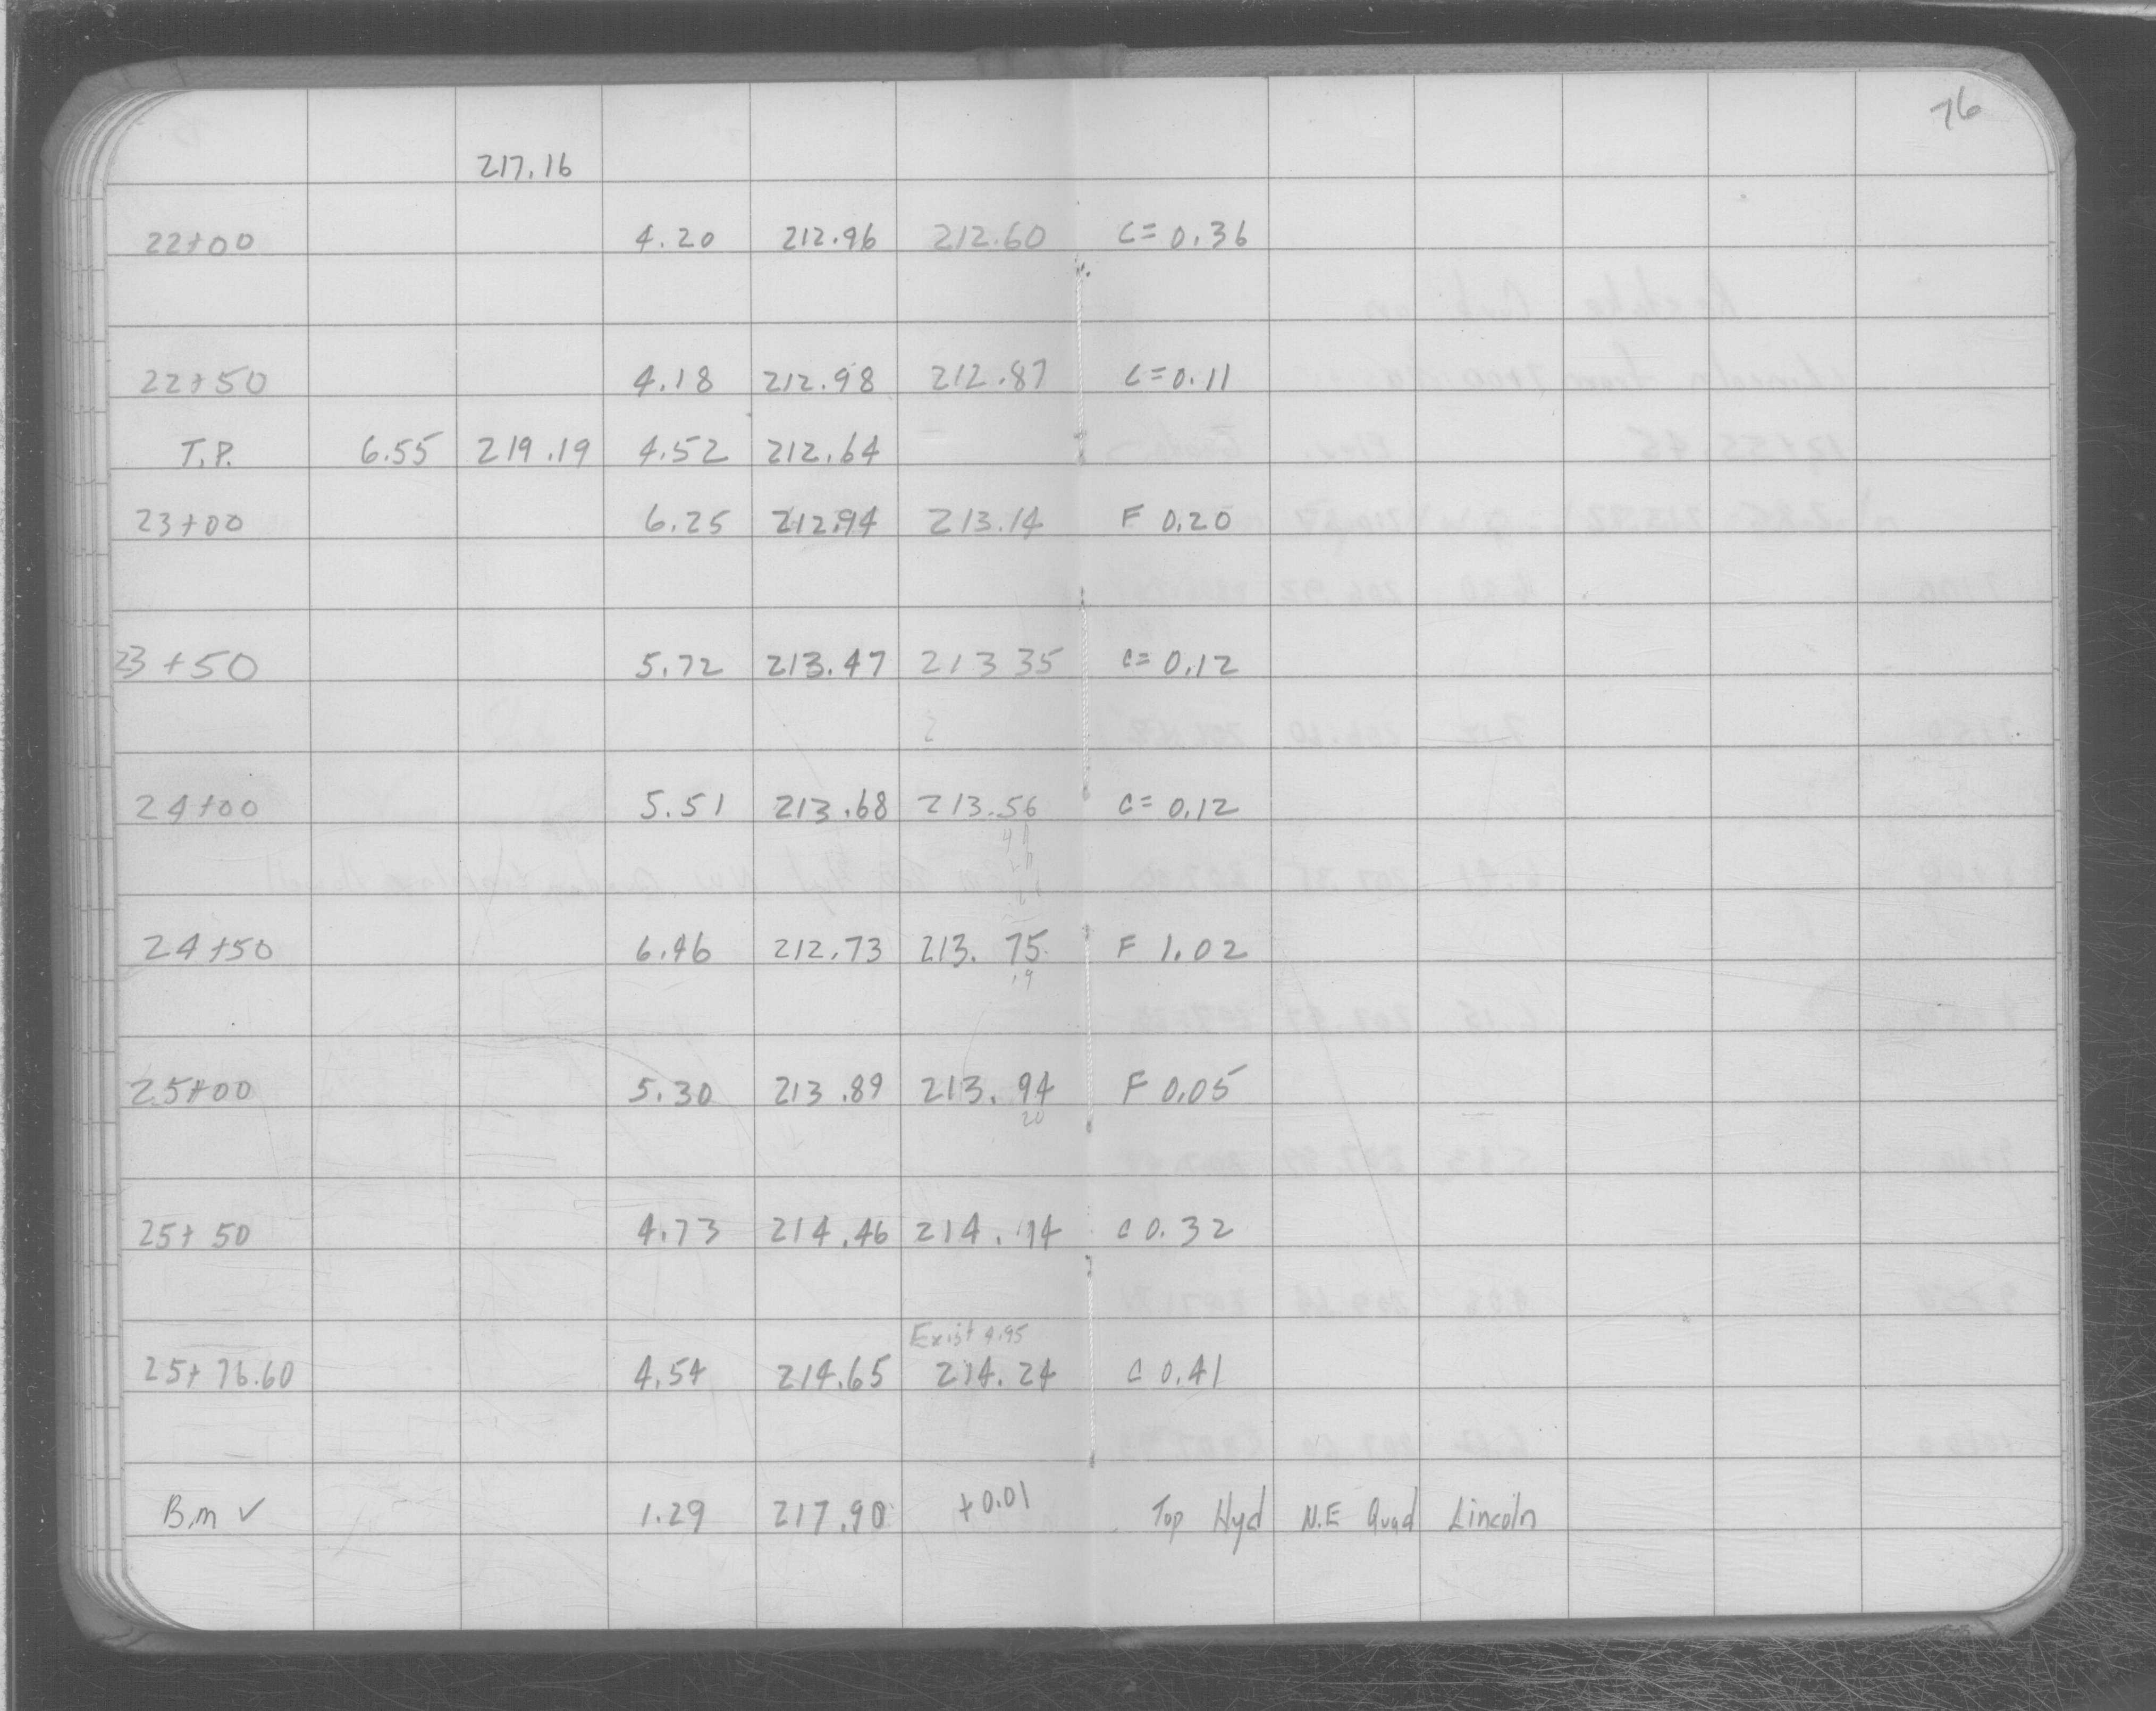 76
217.16
22+00 4.20 212.96 212.60 C= 0.36
22+50 4.18 212.98 212.87 C= 0.11
T.P. 6.55 219.19 4.52 212.64
23+00 6.25 212.94 213.14 F 0.20
23+50 5.72 213.47 213 35 C= 0.12
24+00 5.51 213.68 213.56 C= 0.12
24+50 6.46 212.73 213. 75 F 1.02
.19
25+00 5.30 213.89 213. 94 F 0.05
20
25+50 4.73 214.46 214. 14 C 0.32
Exist 4.95
25+76.60 4.54 214.65 214.24 C 0.41
B.m ✓ 1.29 217.90 +0.01 Top Hyd N.E Quad Lincoln